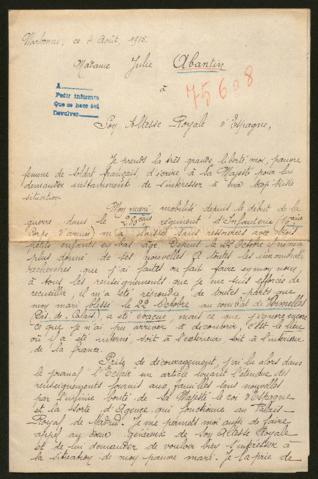 Narbonne, ce 4 Août, 1915.
Madame Julie Abantin
à
75608
A
Pedir informes
Que se hace así
Devolver
Son Altesse Royale d'Espagne,
Je prends la très grande liberté moi, pauvre
femme de soldat français d'écrire à Sa Majesté pour lui
demander instamment de s'intéresser à ma
situation.
Mon mari mobilisé depuis le début de la
guerre dans le 280ème régiment d'Infanterie
Corps d'armée m'a laissée sans ressources avec trois
petits enfants en bas âge. Depuis le 22 Octobre il ne m'a
plus donné de ses nouvelles. A toutes les
recherches que j'ai faites ou fait faire
à tous les renseignements que je me suis efforcée de
recueillir, il m'a été répondu de toutes parts que
mon mari blessé le 22 Octobre au combat de Vermelles
(Pas. de. Calais) a été évacué mais ce que
ce que je n'ai pu arriver à découvrir, c'est le lieu
où il a été soit à l'extérieur soit à l'intérieur
de la France.
Prise de découragement, j'ai lu alors dans
le journal l' un article louant l'étendue des
renseignements fournis aux familles sans nouvelles
par l'infinie bonté de Sa Majesté le roi d'Espagne
et la sorte d'Agence qui fonctionne au Palais
Royal de Madrid. Je me permets moi aussi de faire
appel au cœur généreux de Son Altesse Royale
et de lui demander de vouloir bien s'intéresser à
la situation de mon pauvre mari. Je la prie de